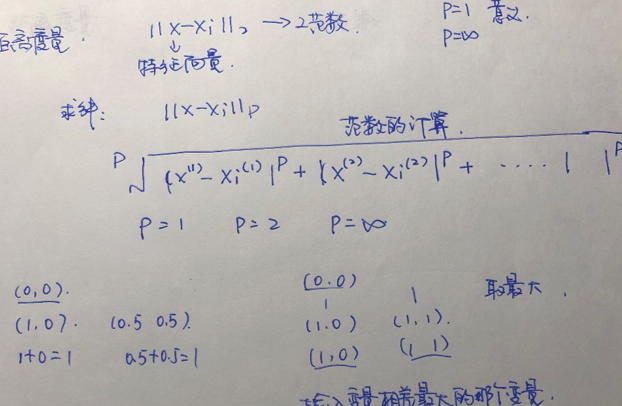 距离度量. ||x-xi||₂ → 2范数. P=1 意义.
↓ P=∞
特征向量.
求解: ||x-xi||p
范数的计算.
P√ |x⁽¹⁾-xi⁽¹⁾|ᴾ + |x⁽²⁾-xi⁽²⁾|ᴾ + ····· | |ᴾ
P=1 P=2 P=∞
(0,0). (0.0) 取最大.
1 1
(1.0). (0.5 0.5). (1.0) (1,1).
1+0=1 0.5+0.5=1 (1,0) (1 1)
输入变量相差最大的那个变量.